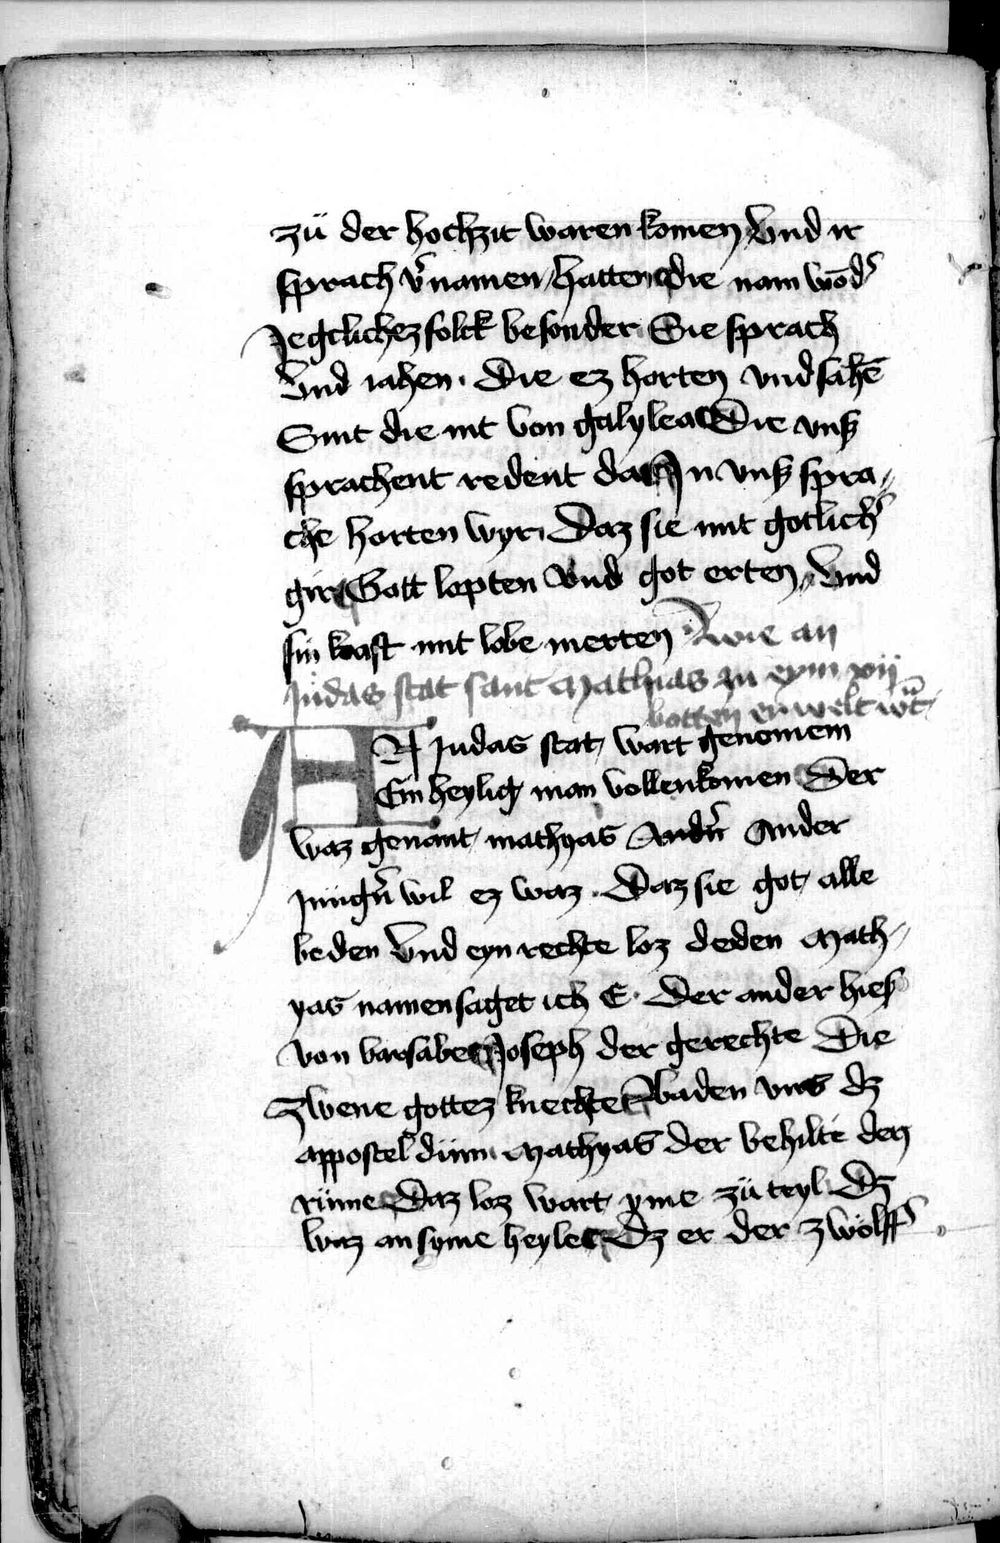 zü der hochzit waren komen Vnd ir
sprach v̾namen hatten die nam wōd̾
Jegclichez folck besonder Sie sprach
Vnd iahen. Die ez horten vnd sahē
Sint die nit von galylea Die vnß
sprachent redent da In vnß spra„
che horten wyr Daz sie mit gotlich̾
gir Gott lopten Vnd got erten Vnd
sin kraft mit lobe merten Wie an
Judas stat sant Mathias zu eym xij
botten erwelt wt̾
AN Judas stat wart genomem
Ein heylig man vollenkomen Der
waz genant mathyas Andrr̾ Ander
jüngr̾ wil ez waz. Daz sie got alle
beden Vnd eyn rechte loz deden Math„
yas namen saget ich E. Der ander hieß
von barsabe Joseph der gerechte Die
Zwene gottez knechte Baden vmb dz
appostel dům Mathyas der behilte den
růme Daz loz wart yme zü teyl Dz
waz an syme heyle Dz er der zwölff̾